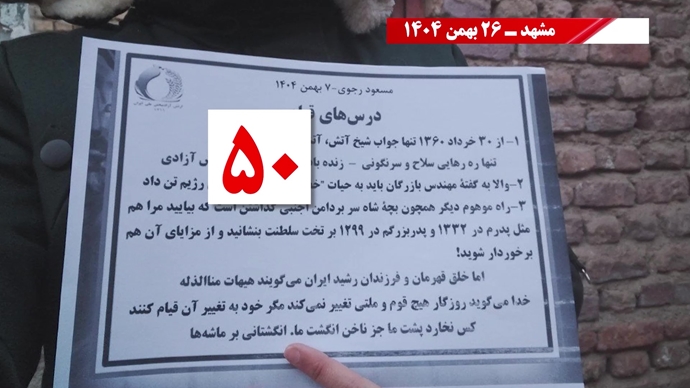 مشهد ــ ۲۶ بهمن ۱۴۰۴
مسعود رجوی-۷ بهمن ۱۴۰۴
درس‌های
۱- از ۳۰ خرداد ۱۳۶۰ تنها جواب شیخ آتش،
تنها ره رهایی سلاح و سرنگونی - زنده آزادی
۵۰
۲-والا به گفتهٔ مهندس بازرگان باید به حیات رژیم تن داد
۳-راه موهوم دیگر همچون بچهٔ شاه سر بردامن اجنبی گذاشتن است که بیایید مرا هم
مثل پدرم در ۱۳۳۲ و پدربزرگم در ۱۲۹۹ بر تخت سلطنت بنشانید و از مزایای آن هم
برخوردار شوید!
اما خلق قهرمان و فرزندان رشید ایران می‌گویند هیهات مناالذله
خدا می‌گوید روزگار هیچ قوم و ملتی تغییر نمی‌کند مگر خود به تغییر آن قیام کنند
کس نخارد پشت ما جز ناخن انگشت ما. انگشتانی بر ماشه‌ها